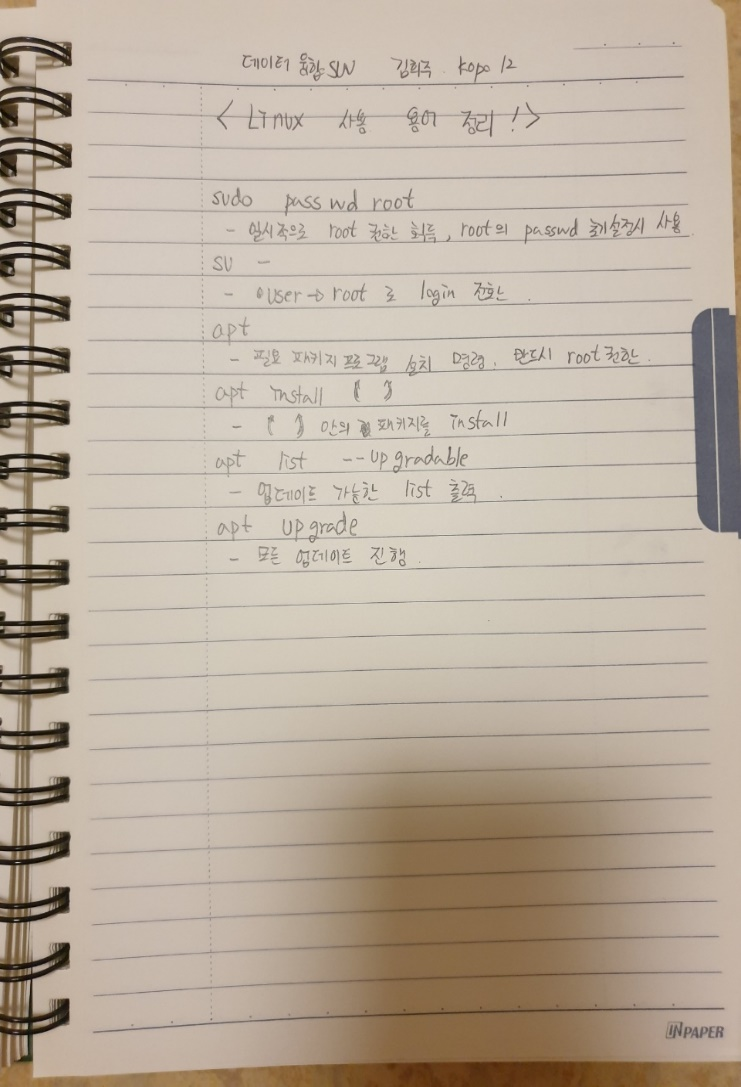 데이터 융합SW 김희주 kopo 12
< Linux 사용 용어 정리 ! >
sudo passwd root
- 일시적으로 root 권한 획득, root의 passwd 초기설정시 사용.
su -
- user → root 로 login 전환.
apt
- 필요 패키지 프로그램 설치 명령. 반드시 root권한.
apt install { }
- { } 안의 패키지를 install
apt list --upgradable
- 업데이트 가능한 list 출력.
apt upgrade
- 모든 업데이트 진행.
INPAPER